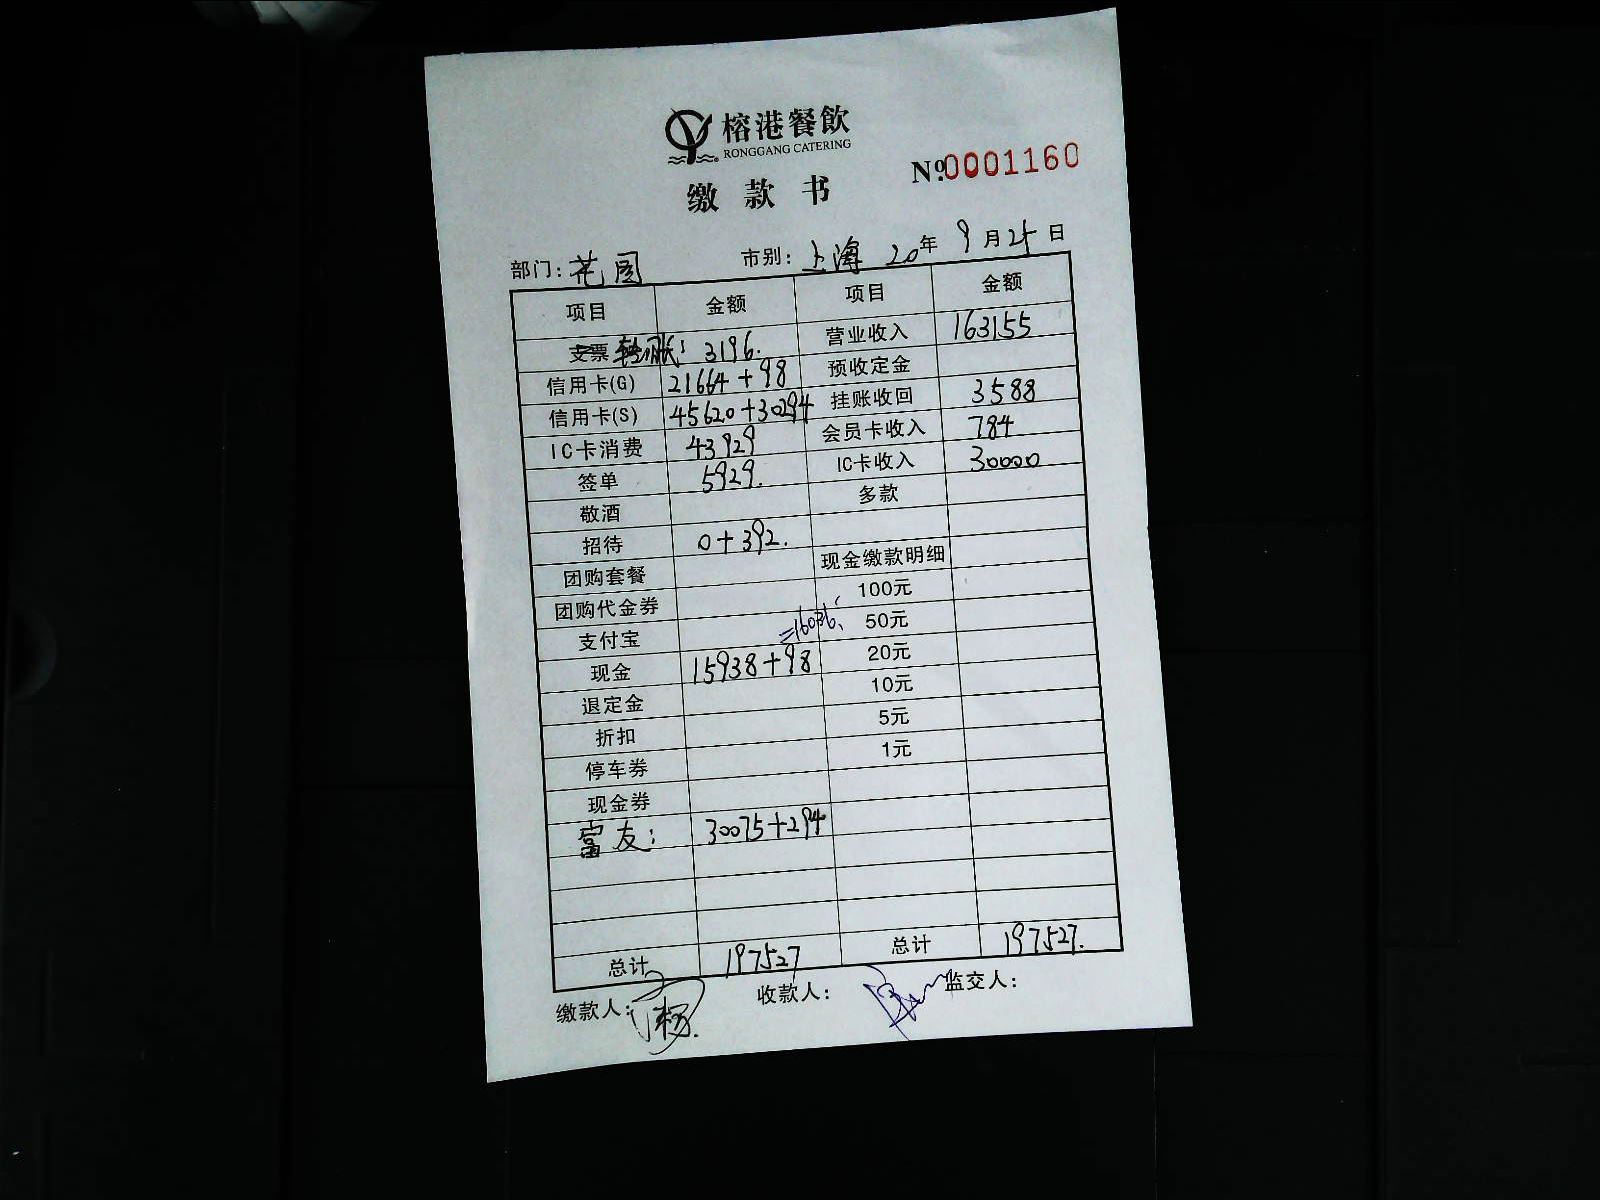 榕港餐飲
RONGGANG CATERING
缴款书
№0001160
部门：花园 市别：上海 20年9月25日
项目 金额 项目 金额
支票 转账： 3196. 营业收入 163155
信用卡(G) 21664+98 预收定金
信用卡(S) 45620+30294 挂账收回 3588
IC卡消费 43929 会员卡收入 784
签单 5929. IC卡收入 30000
敬酒 多款
招待 0+392.
团购套餐 现金缴款明细
团购代金券 100元
支付宝 =16036 50元
现金 15938+98 20元
退定金 10元
折扣 5元
停车券 1元
现金券
富友： 30075+294
总计 197527 总计 197527.
缴款人： 收款人： 监交人：